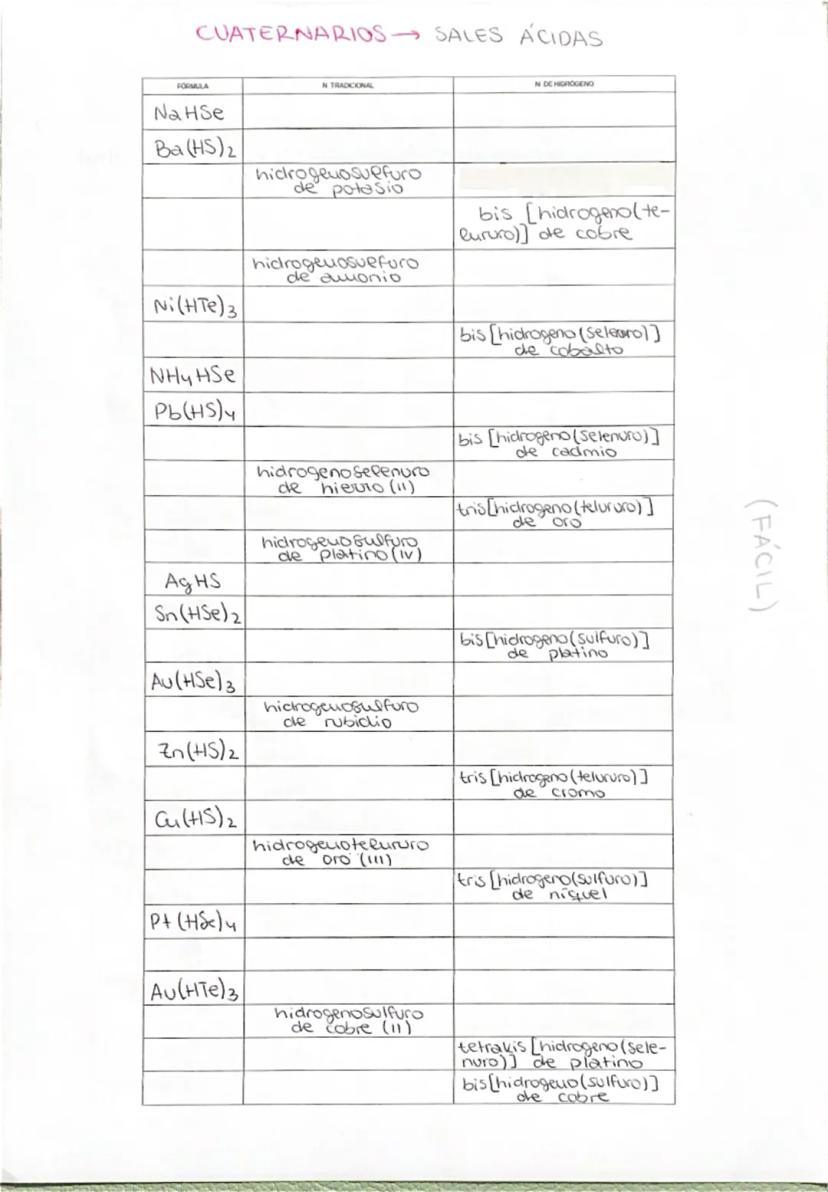 CUATERNARIOS → SALES ÁCIDAS
FÓRMULA N. TRADICIONAL N. DE HIDRÓGENO
NaHSe
Ba(HS)2
hidrogenosulfuro
de potasio
bis [hidrogeno(te-
lururo)] de cobre
hidrogenosulfuro
de amonio
Ni(HTe)3
bis [hidrogeno(selenuro)]
de cobalto
NH4HSe
Pb(HS)4
bis [hidrogeno(selenuro)]
de cadmio
hidrogenoselenuro
de hierro (II)
tris[hidrogeno(telururo)]
de oro
hidrogenosulfuro
de platino (IV)
AgHS
Sn(HSe)2
bis[hidrogeno(sulfuro)]
de platino
Au(HSe)3
hidrogenosulfuro
de rubidio
Zn(HS)2
tris [hidrogeno(telururo)]
de cromo
Cu(HS)2
hidrogenotelururo
de oro (III)
tris [hidrogeno(sulfuro)]
de níquel
Pt(HSe)4
Au(HTe)3
hidrogenosulfuro
de cobre (II)
tetrakis [hidrogeno(sele-
nuro)] de platino
bis[hidrogeno(sulfuro)]
de cobre
(FÁCIL)